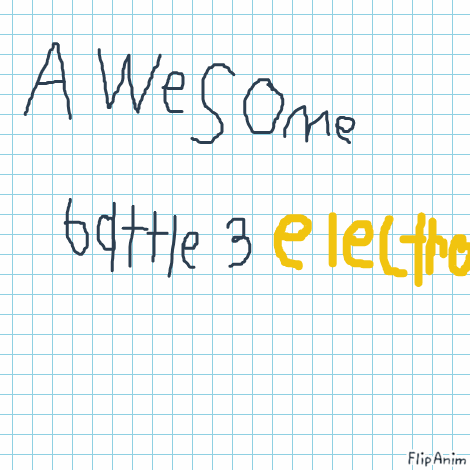 AWesome
battle 3 electro
FlipAnim